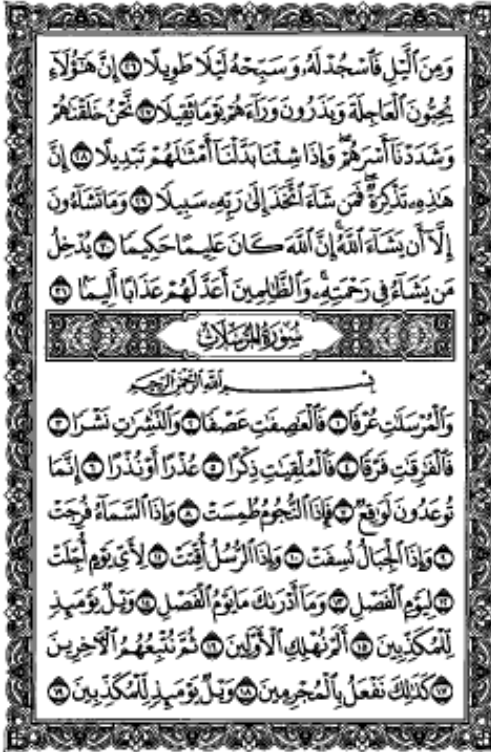 وَمِنَ ٱلَّيْلِ فَٱسْجُدْ لَهُۥ وَسَبِّحْهُ لَيْلًا طَوِيلًا ٢٦ إِنَّ هَـٰٓؤُلَآءِ
يُحِبُّونَ ٱلْعَاجِلَةَ وَيَذَرُونَ وَرَآءَهُمْ يَوْمًا ثَقِيلًا ٢٧ نَّحْنُ خَلَقْنَـٰهُمْ
وَشَدَدْنَآ أَسْرَهُمْ ۖ وَإِذَا شِئْنَا بَدَّلْنَآ أَمْثَـٰلَهُمْ تَبْدِيلًا ٢٨ إِنَّ
هَـٰذِهِۦ تَذْكِرَةٌ ۖ فَمَن شَآءَ ٱتَّخَذَ إِلَىٰ رَبِّهِۦ سَبِيلًا ٢٩ وَمَا تَشَآءُونَ
إِلَّآ أَن يَشَآءَ ٱللَّهُ ۚ إِنَّ ٱللَّهَ كَانَ عَلِيمًا حَكِيمًا ٣٠ يُدْخِلُ
مَن يَشَآءُ فِى رَحْمَتِهِۦ ۚ وَٱلظَّـٰلِمِينَ أَعَدَّ لَهُمْ عَذَابًا أَلِيمًۢا ٣١
سُورَةُ الْمُرْسَلَاتِ
بِسْمِ ٱللَّهِ ٱلرَّحْمَـٰنِ ٱلرَّحِيمِ
وَٱلْمُرْسَلَـٰتِ عُرْفًا ١ فَٱلْعَـٰصِفَـٰتِ عَصْفًا ٢ وَٱلنَّـٰشِرَٰتِ نَشْرًا ٣
فَٱلْفَـٰرِقَـٰتِ فَرْقًا ٤ فَٱلْمُلْقِيَـٰتِ ذِكْرًا ٥ عُذْرًا أَوْ نُذْرًا ٦ إِنَّمَا
تُوعَدُونَ لَوَٰقِعٌ ٧ فَإِذَا ٱلنُّجُومُ طُمِسَتْ ٨ وَإِذَا ٱلسَّمَآءُ فُرِجَتْ
٩ وَإِذَا ٱلْجِبَالُ نُسِفَتْ ١٠ وَإِذَا ٱلرُّسُلُ أُقِّتَتْ ١١ لِأَىِّ يَوْمٍ أُجِّلَتْ
١٢ لِيَوْمِ ٱلْفَصْلِ ١٣ وَمَآ أَدْرَىٰكَ مَا يَوْمُ ٱلْفَصْلِ ١٤ وَيْلٌ يَوْمَئِذٍ
لِّلْمُكَذِّبِينَ ١٥ أَلَمْ نُهْلِكِ ٱلْأَوَّلِينَ ١٦ ثُمَّ نُتْبِعُهُمُ ٱلْـَٔاخِرِينَ
١٧ كَذَٰلِكَ نَفْعَلُ بِٱلْمُجْرِمِينَ ١٨ وَيْلٌ يَوْمَئِذٍ لِّلْمُكَذِّبِينَ ١٩